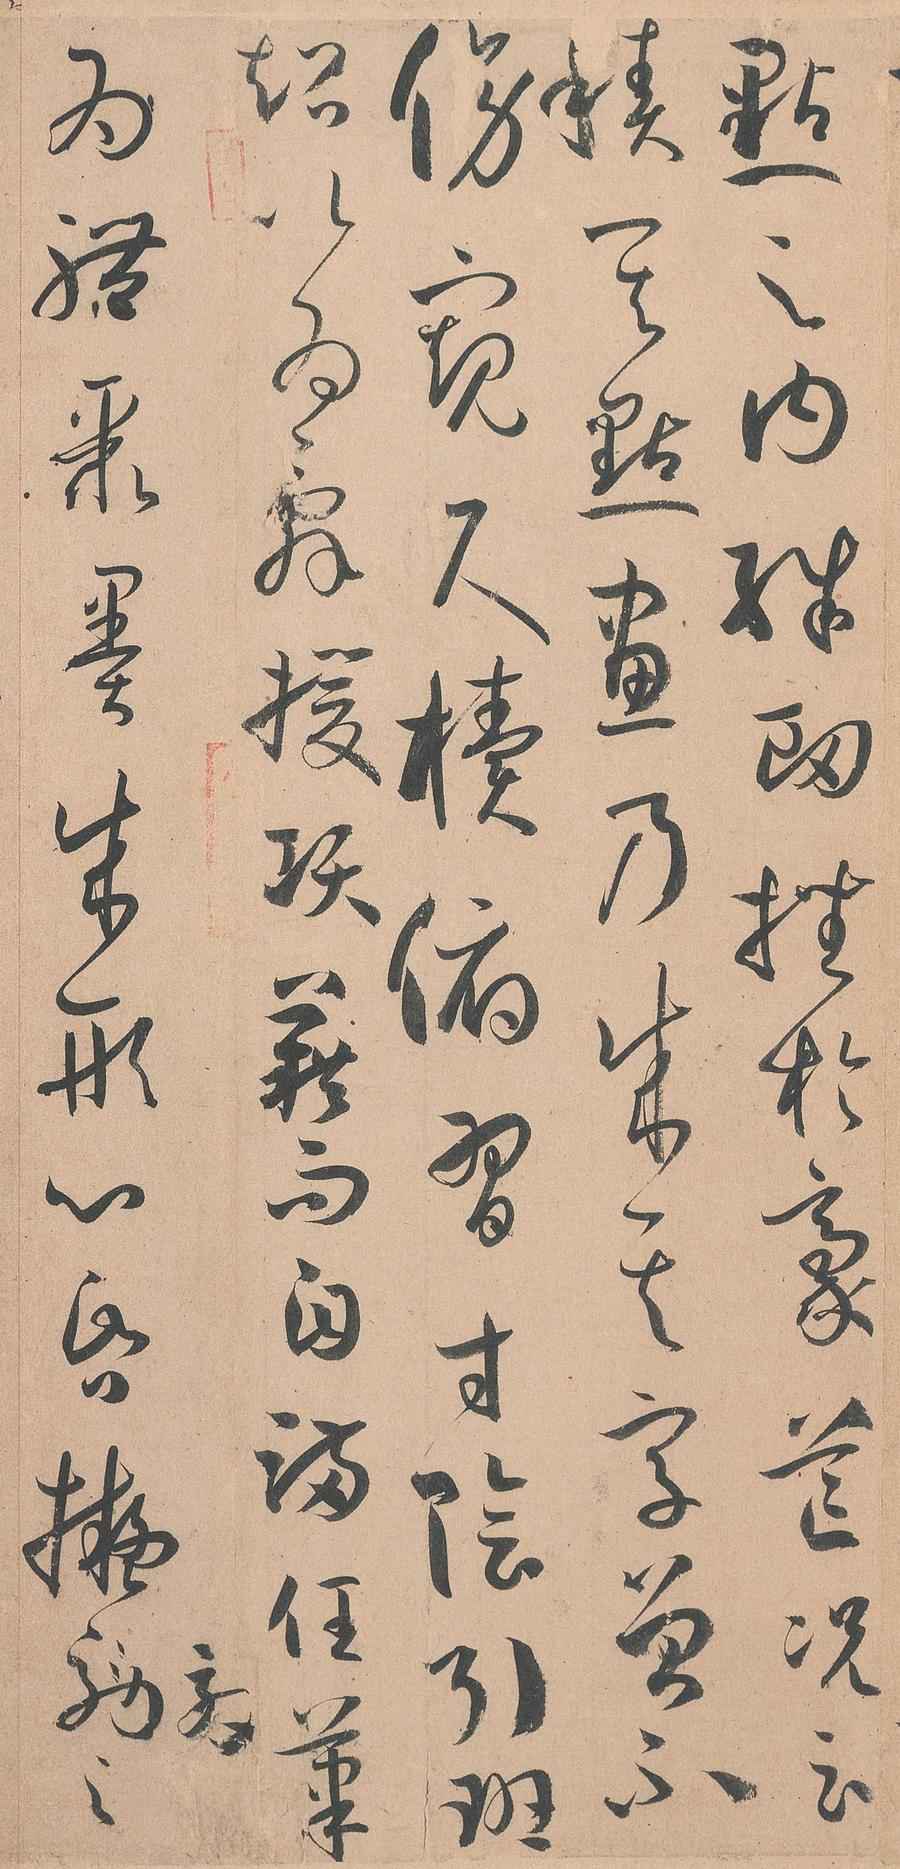 點之内殊衂挫於豪芒況云
積其點畫乃成其字曾不
傍窺尺櫝俯習寸陰引班
超以爲辭援項籍而自滿任筆
爲體聚墨成形心昏擬効之